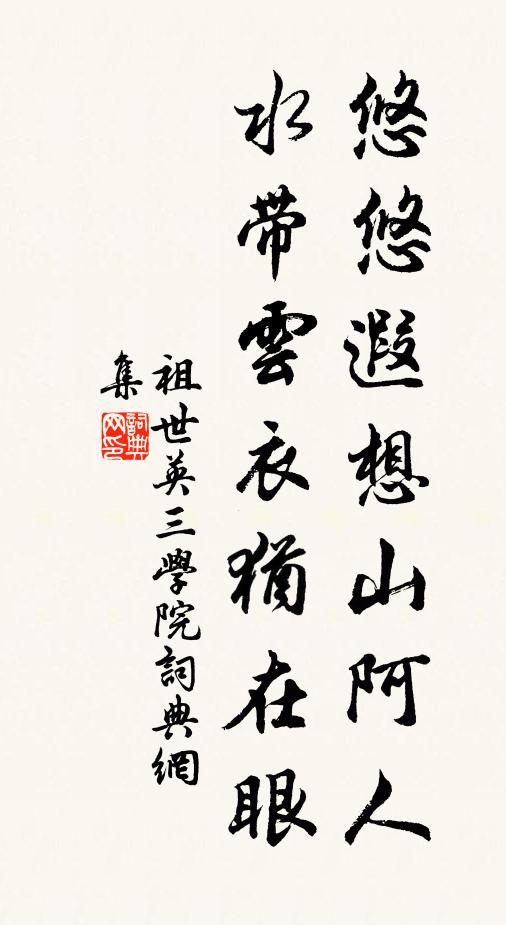 悠悠遐想山阿人
水帶雲衣猶在眼
祖世英三學院詞典網
集
詞典网印